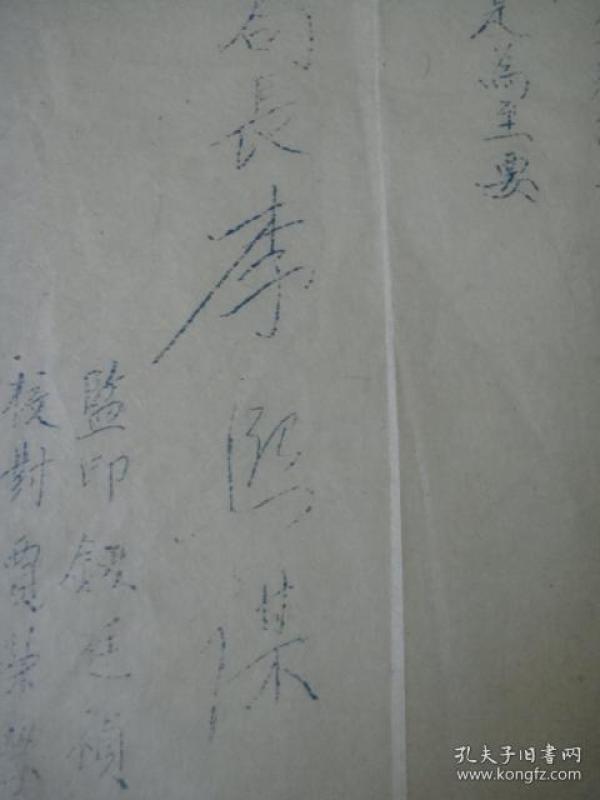 是為至要
局長 李熙謀
監印 錢廷禎
校對 賈榮
孔夫子旧书网
www.kongfz.com